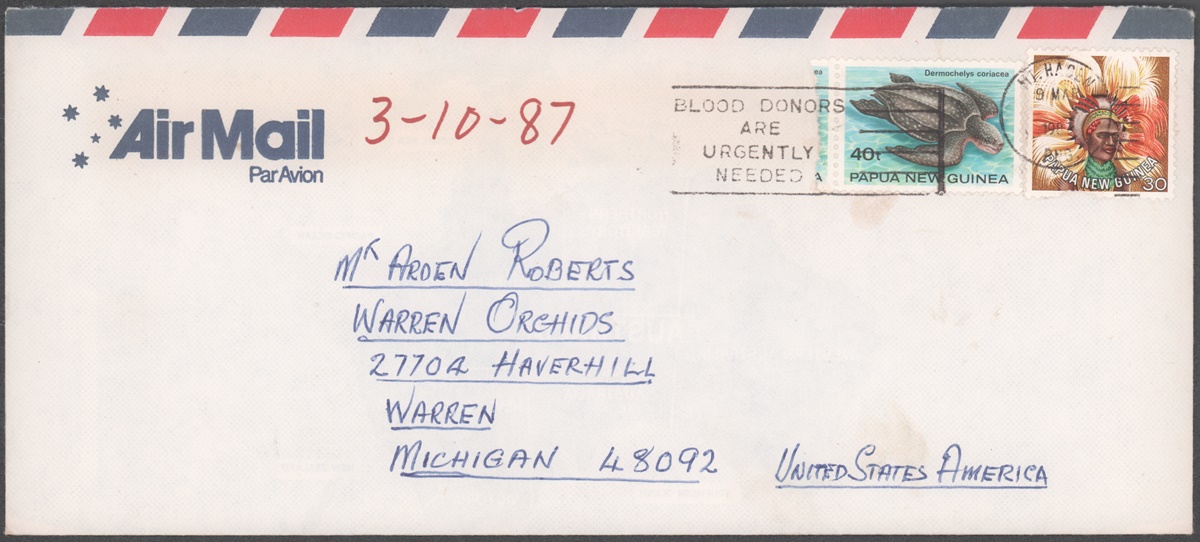 Air Mail
Par Avion
3-10-87
BLOOD DONORS
ARE
URGENTLY
NEEDED
ea
A
Dermochelys coriacea
40t
PAPUA NEW GUINEA
PAPUA NEW GUINEA
30
Mr ARDEN ROBERTS
WARREN ORCHIDS
27704 HAVERHILL
WARREN
MICHIGAN 48092
UNITED STATES AMERICA